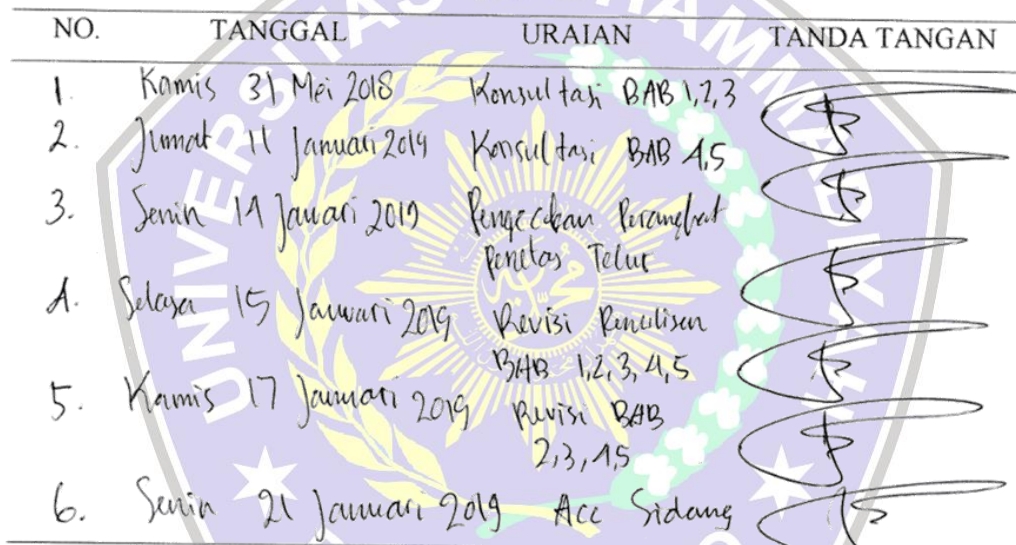 NO. TANGGAL URAIAN TANDA TANGAN
1. Kamis 31 Mei 2018 Konsultasi BAB 1,2,3
2. Jumat 11 Januari 2019 Konsultasi BAB 4,5
3. Senin 14 Januari 2019 Pengecekan Perangkat
Penetas Telur
4. Selasa 15 Januari 2019 Revisi Penulisan
BAB 1,2,3,4,5
5. Kamis 17 Januari 2019 Revisi BAB
2,3,4,5
6. Senin 21 Januari 2019 Acc Sidang